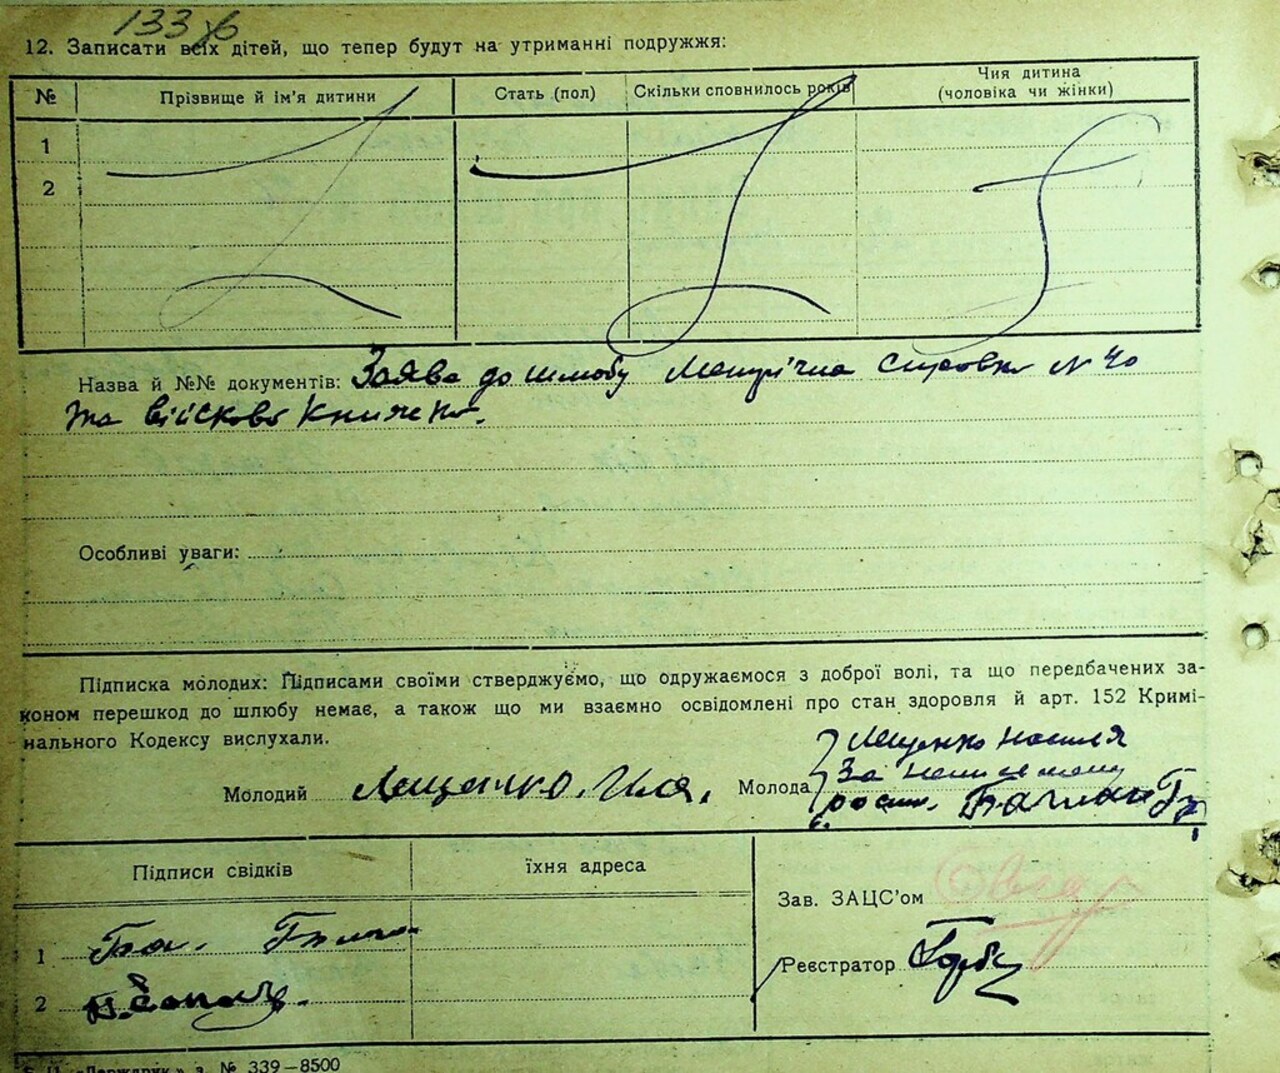 133
12. Записати всіх дітей, що тепер будут на утриманні подружжя:
№ Прізвище й ім'я дитини Стать (пол) Скільки сповнилось років Чия дитина (чоловіка чи жінки)
1
2
Назва й №№ документів: Заява до шлюбу Метрічна справка N 40
та військова книжка.
Особливі уваги:
Підписка молодих: Підписами своїми стверджуємо, що одружаємося з доброї волі, та що передбачених за-
коном перешкод до шлюбу немає, а також що ми взаємно освідомлені про стан здоровля й арт. 152 Кримі-
нального Кодексу вислухали.
Молодий Лещенко. Молода
За
Підписи свідків їхня адреса
Зав. ЗАЦС'ом
1
Реєстратор
2
з. № 339—8500